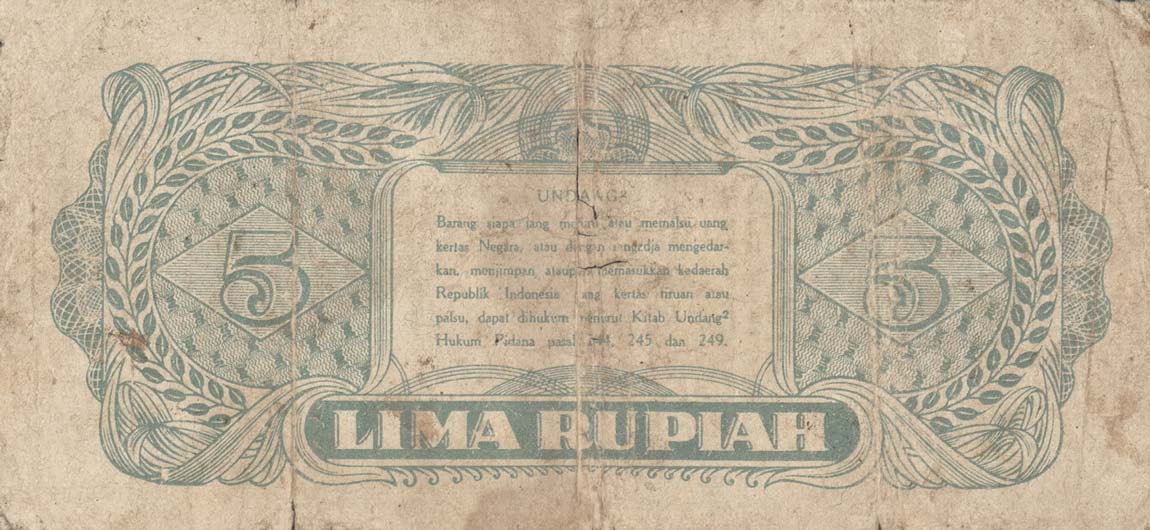 UNDANG²
Barang siapa jang meniru atau memalsu uang
kertas Negara, atau dengan sengedja mengedar-
kan, menjimpan ataupun memasukkan kedaerah
Republik Indonesia uang kertas tiruan atau
palsu, dapat dihukum menurut Kitab Undang²
Hukum Pidana pasal 244, 245 dan 249.
5
5
LIMA RUPIAH